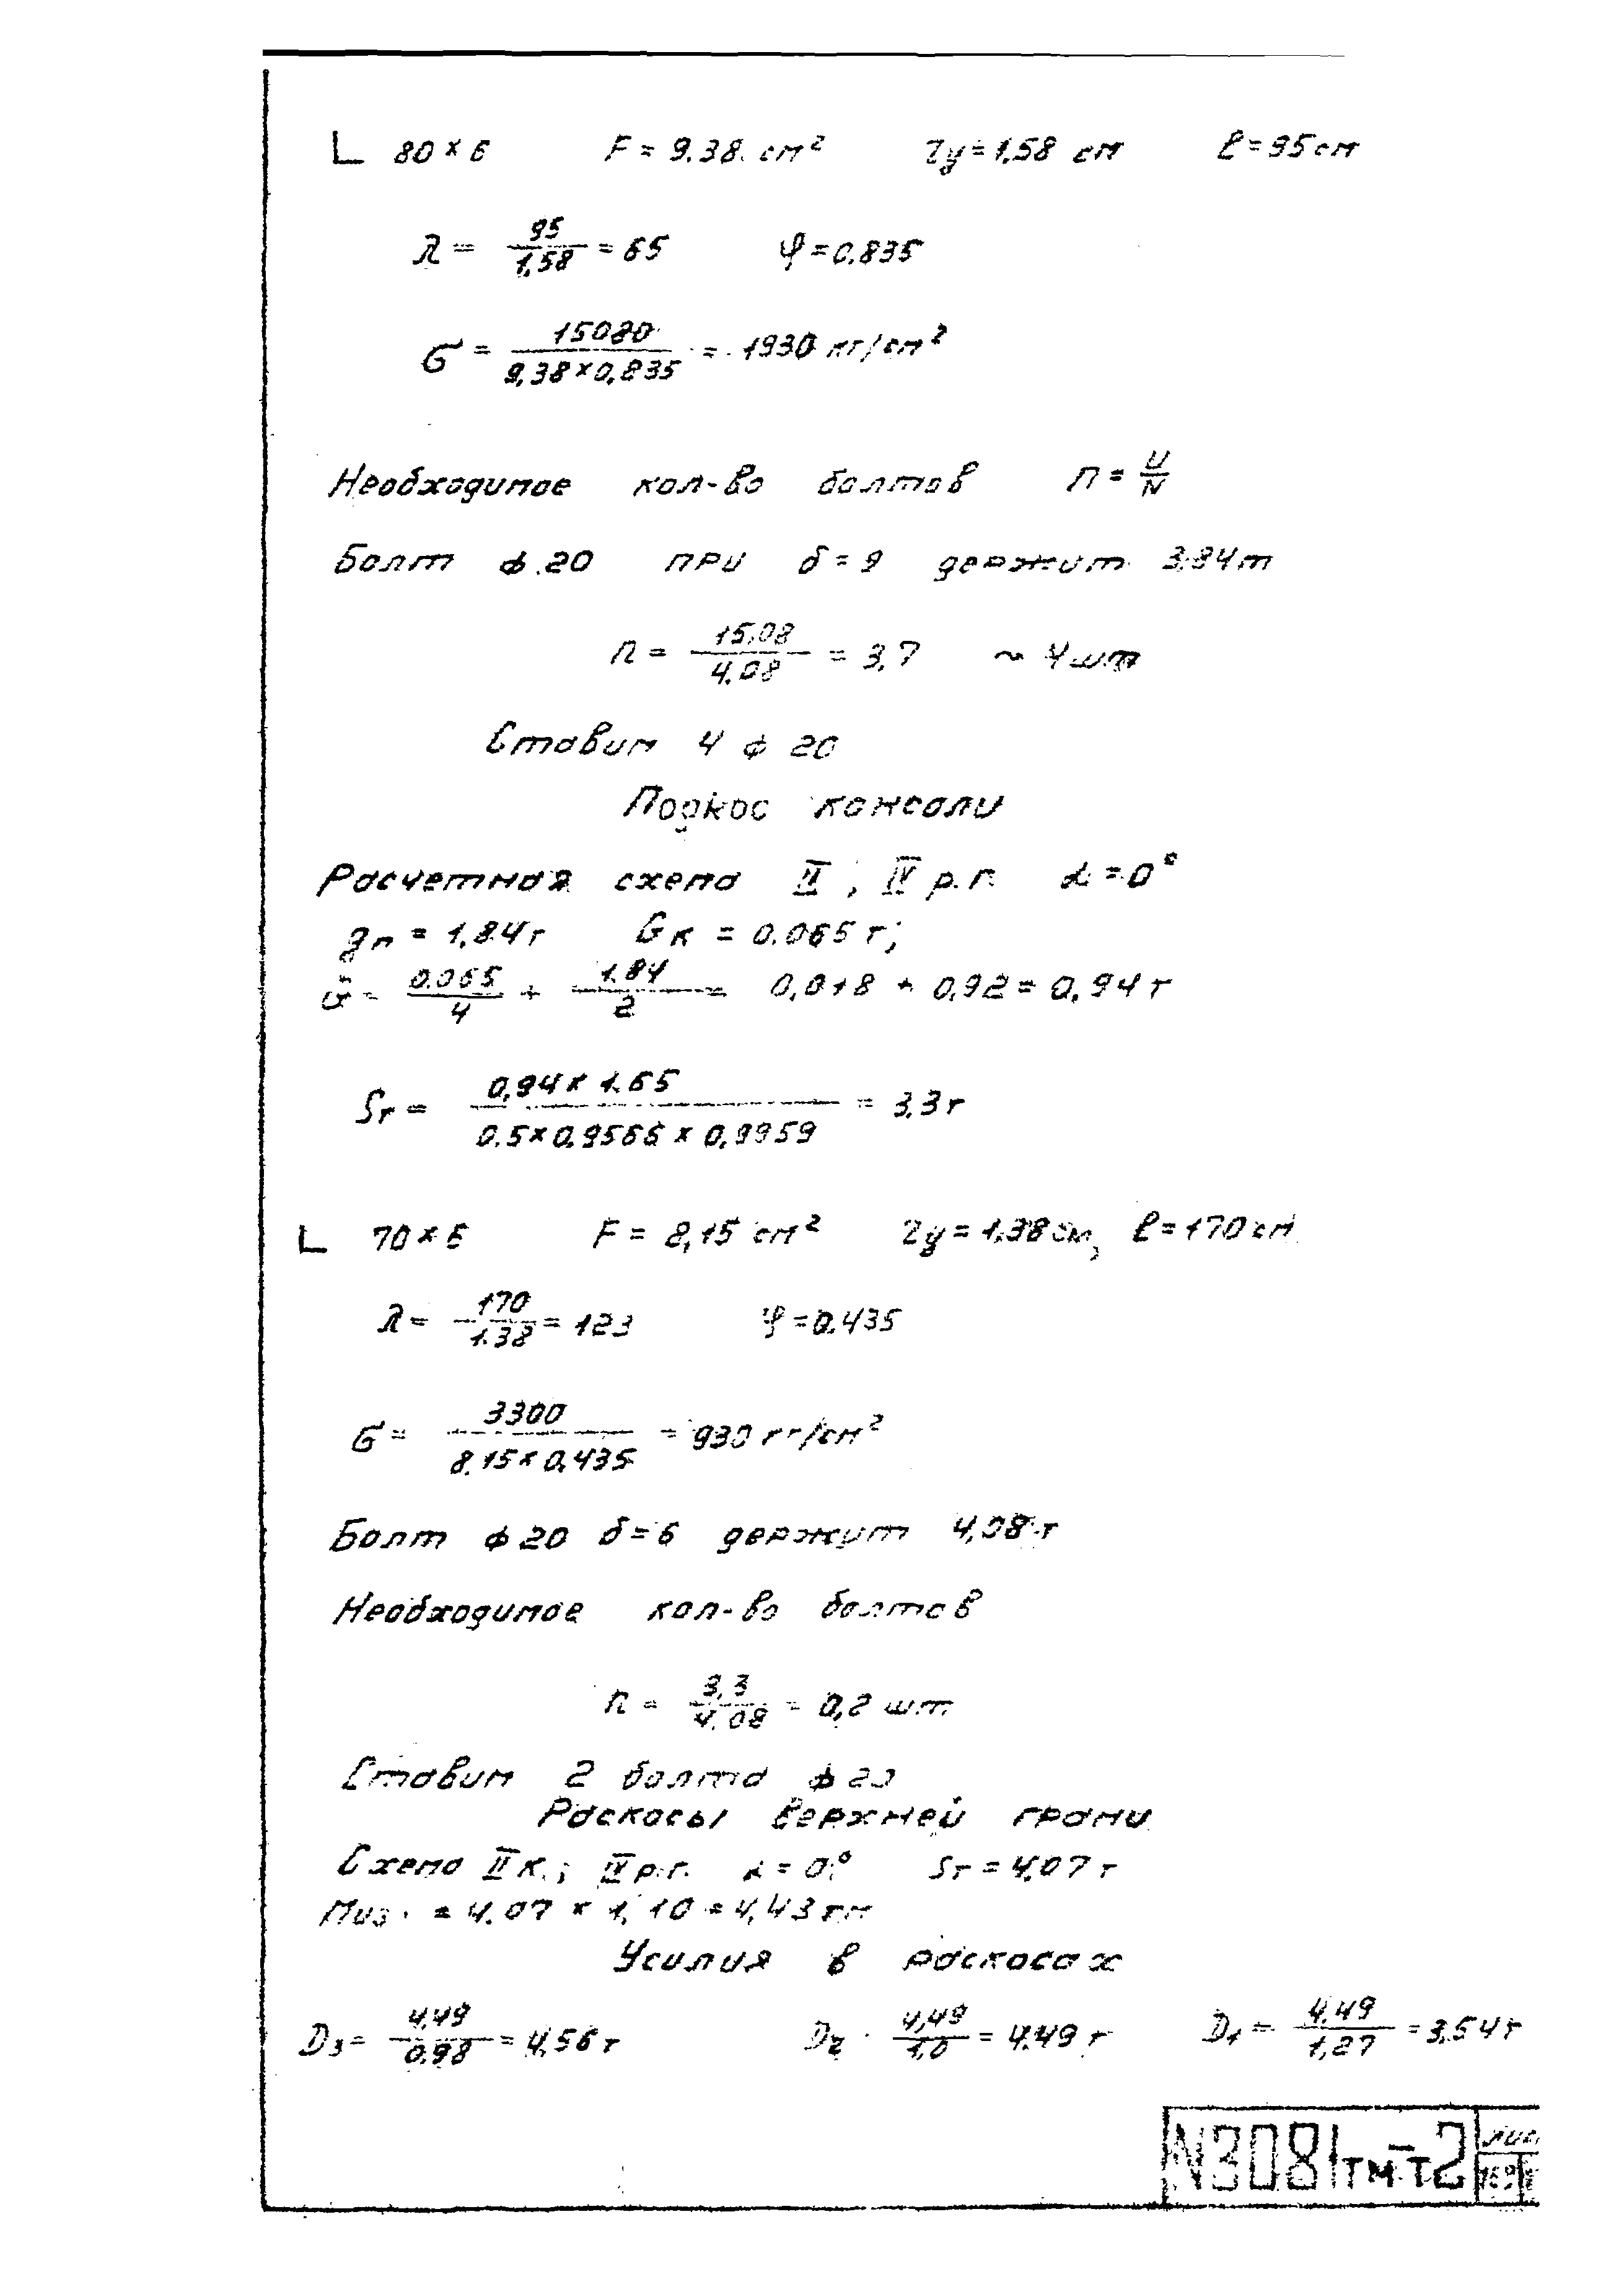 L 80×6 F = 9.38 см² ry = 1,58 см ℓ = 95 см
λ = 95/1,58 = 65 φ = 0.835
σ = 15080/9,38×0,835 = 1930 кг/см²
Необходимое кол-во болтов n = U/N
Болт ф 20 при δ = 9 держит 3,84т
n = 15,08/4.08 = 3,7 ~ 4 шт
Ставим 4 ф 20
Подкос консоли
Расчетная схема II, IV р.г. α = 0°
gп = 1,84т Gк = 0.065 т;
G = 0.065/4 + 1.84/2 = 0,018 + 0,92 = 0,94 т
Sт = 0,94 × 1.65/0.5×0,9566×0,9959 = 3,3 т
L 70×6 F = 8,15 см² ry = 1,38 см, ℓ = 170 см
λ = 170/1.38 = 123 φ = 0.435
σ = 3300/8.15×0,435 = 930 кг/см²
Болт ф 20 δ = 6 держит 4,08 т
Необходимое кол-во болтов
n = 3,3/4.08 = 0,2 шт
Ставим 2 болта ф 20
Раскосы верхней грани
Схема II к.; IV р.г. α = 0° Sт = 4,07 т
Миз. = 4.07 × 1,10 = 4,43 тм
Усилия в раскосах
D₃ = 4,49/0.98 = 4,56 т D₂ = 4,49/1,0 = 4.49 т D₁ = 4,49/1,27 = 3,54 т
N3081тм-т2